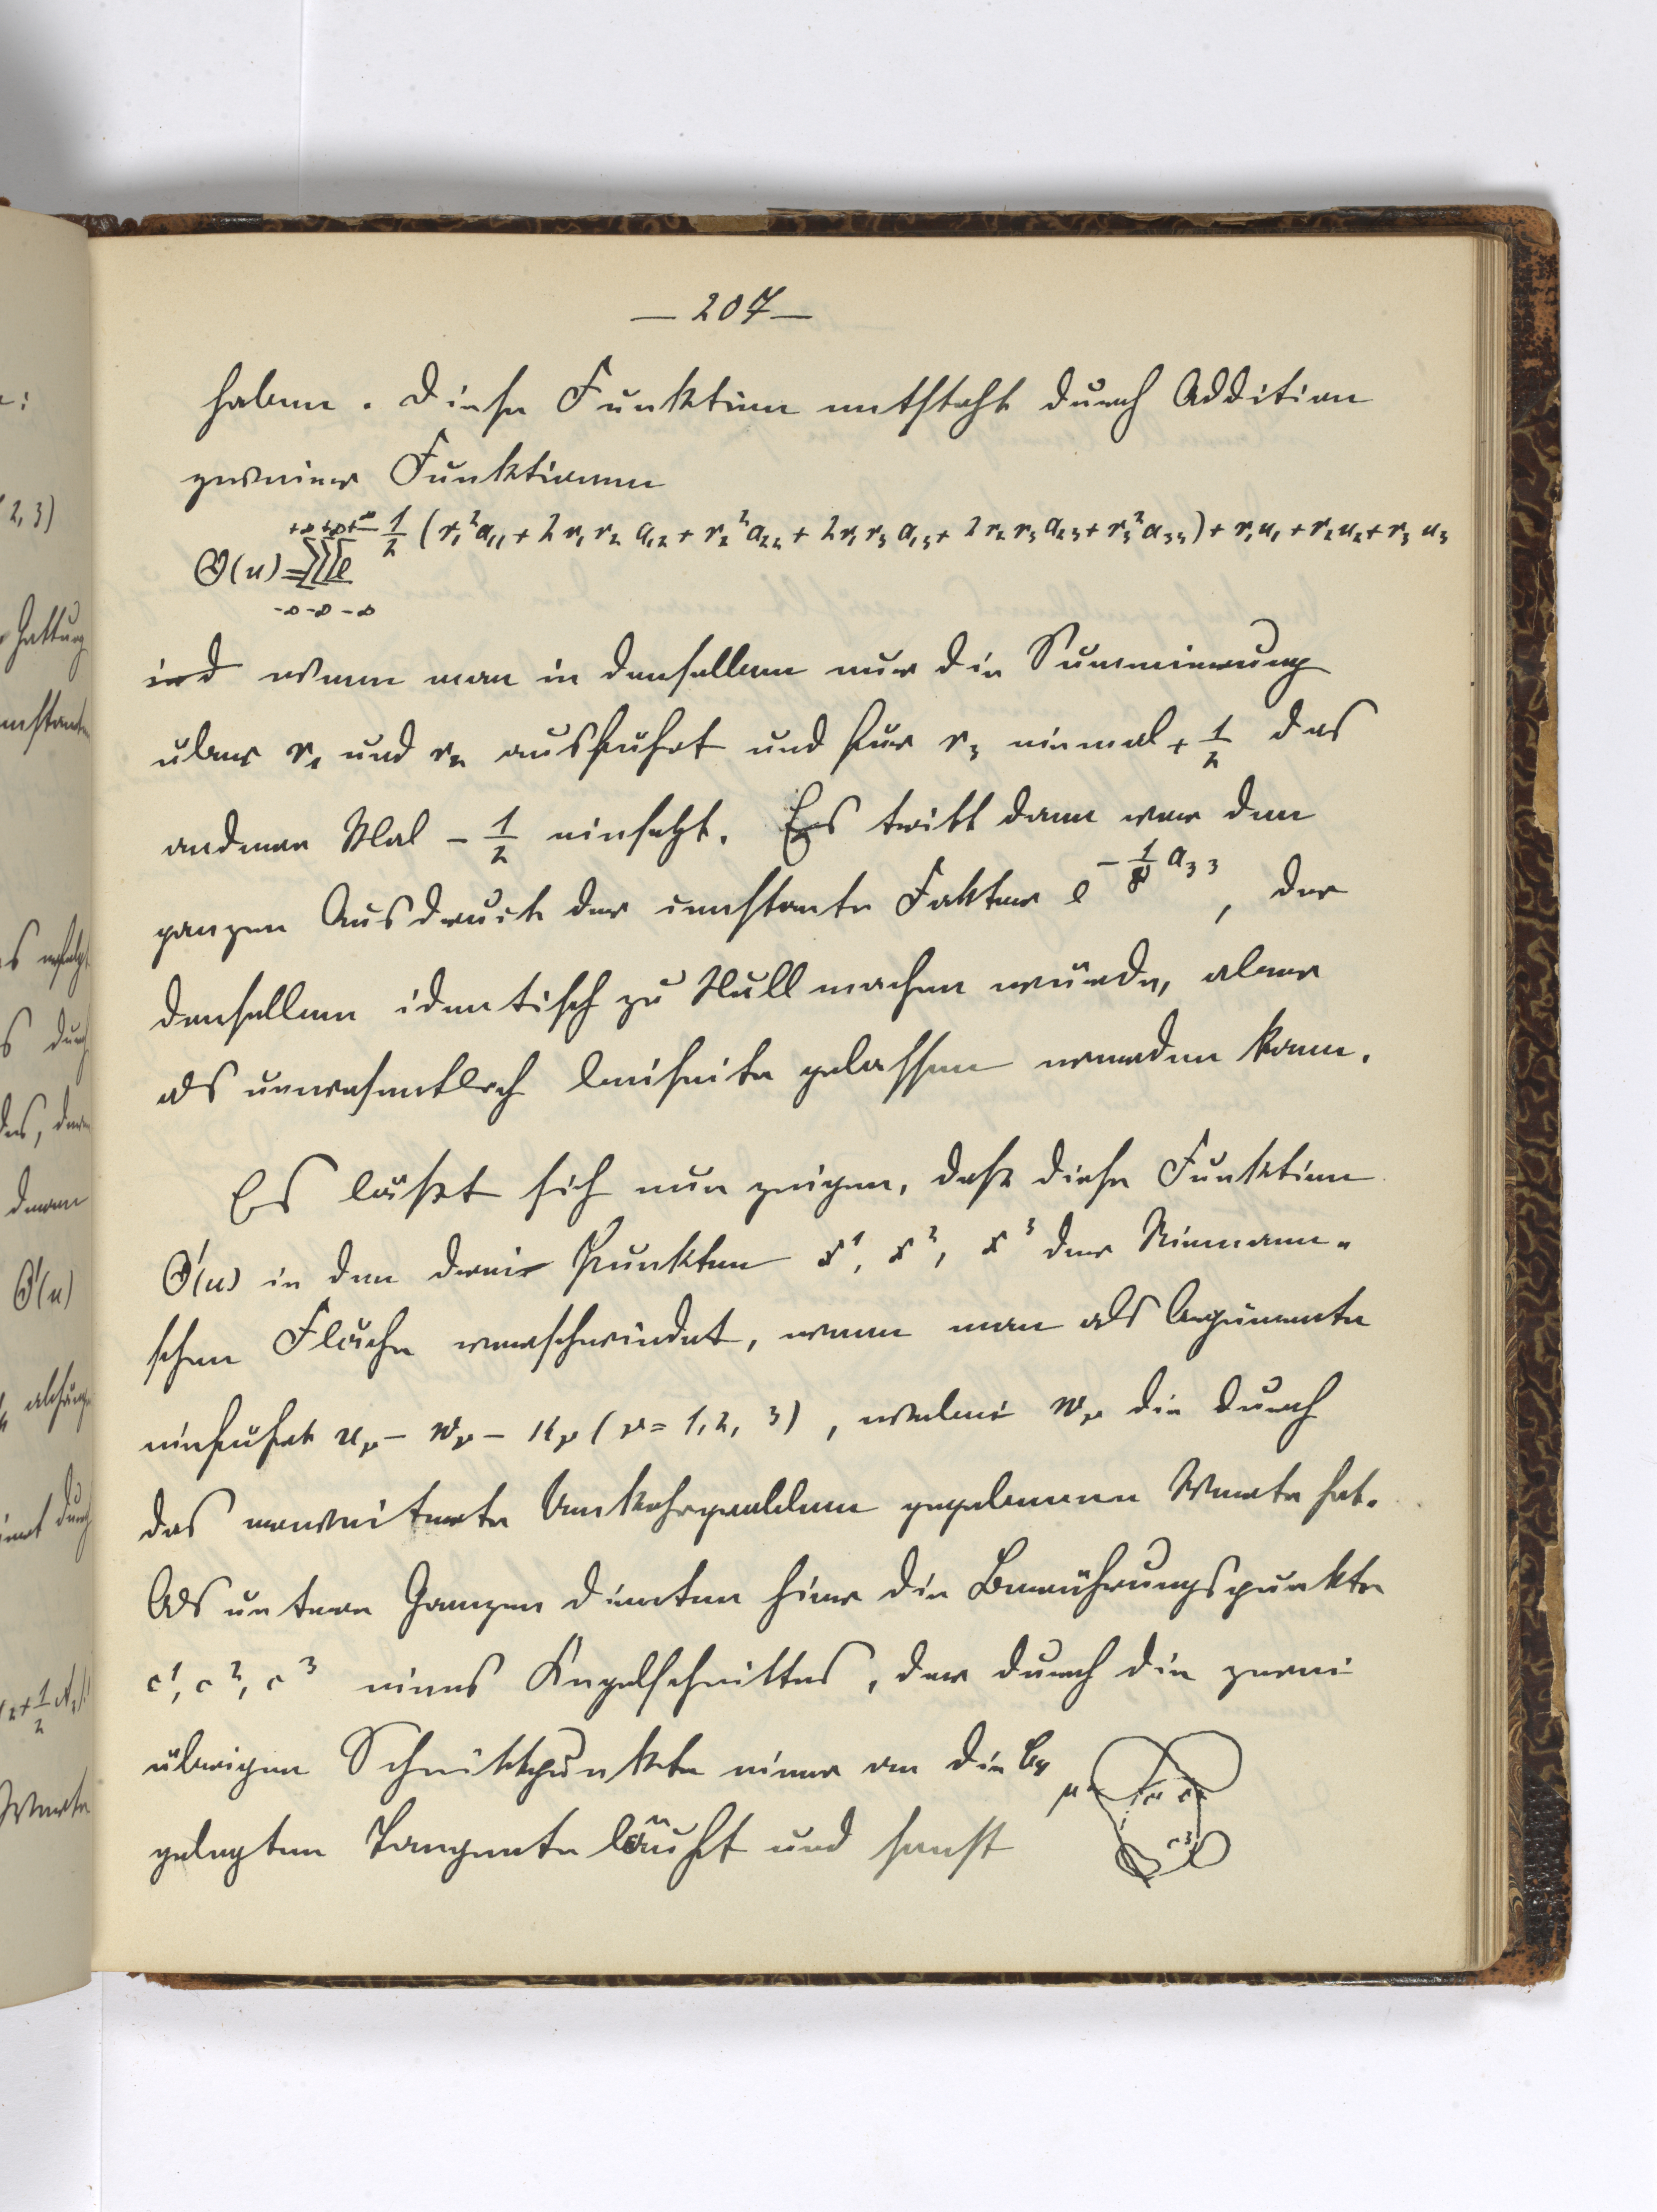 — 207 —
haben. Diese Funktion entsteht durch Addition
zweier Funktionen
Θ(u) = ∑∑∑ e^{-1/2 (r₁²a₁₁ + 2r₁r₂a₁₂ + r₂²a₂₂ + 2r₁r₃a₁₃ + 2r₂r₃a₂₃ + r₃²a₃₃) + r₁u₁ + r₂u₂ + r₃u₃}
+∞ +∞ +∞
-∞ -∞ -∞
ind wenn man in denselben nur die Summierung
über r₁ und r₂ ausführt und für r₃ einmal + 1/2 das
andere Mal - 1/2 einsetzt. Es tritt dann vor den
ganzen Ausdruck der constante Faktor e^{-1/8 a₃₃}, der
denselben identisch zu Null machen würde, aber
als unwesentlich beiseite gelassen werden kann.
Es läßt sich nun zeigen, daß diese Funktion
Θ'(u) in den drei Punkten x¹, x², x³ der Riemann-
schen Fläche verschwindet, wenn man als Argumente
einführt uᵥ - wᵥ - kᵥ (ν = 1, 2, 3), wobei wᵥ die durch
das erweiterte Umkehrproblem gegebenen Werte hat.
Als untere Grenzen dienten hier die Berührungspunkte
c¹, c², c³ eines Kegelschnittes, der durch die zwei
übrigen Schnittpunkte einer an die C₄
gelegten Tangente läuft und sonst
μ
c³